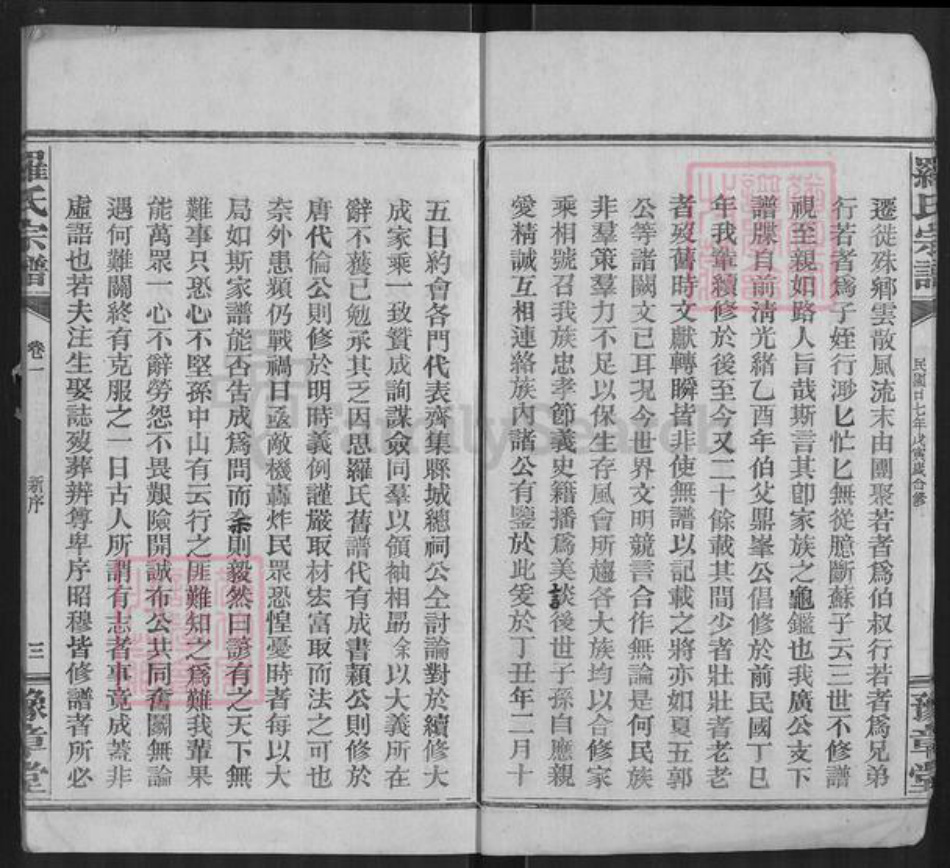 羅氏宗譜
民國廿七年戊寅歲合修
豫章堂
遷徙殊鄉雲散風流末由團聚若者爲伯叔行若者爲兄弟
行若者爲子姪行渺匕忙匕無從臆斷蘇子云三世不修譜
視至親如路人旨哉斯言其卽家族之龜鑑也我廣公支下
譜牒自前淸光緖乙酉年伯父鼎峯公倡修於前民國丁巳
年我輩續修於後至今又二十餘載其間少者壯壯者老老
者歿舊時文獻轉瞬皆非使無譜以記載之將亦如夏五郭
公等諸闕文已耳况今世界文明競言合作無論是何民族
非羣策羣力不足以保生存風會所趨各大族均以合修家
乘相號召我族忠孝節義史籍播爲美談後世子孫自應親
愛精誠互相連絡族內諸公有鑒於此爰於丁丑年二月十
五日約會各門代表齊集縣城總祠公仝討論對於續修大
成家乘一致贊成詢謀僉同羣以領袖相勗余以大義所在
辭不蒦已勉承其乏因思羅氏舊譜代有成書穎公則修於
唐代倫公則修於明時義例謹嚴取材宏富取而法之可也
奈外患頻仍戰禍日亟敵機轟炸民眾恐惶憂時者每以大
局如斯家譜能否告成爲問而余則毅然曰諺有之天下無
難事只恐心不堅孫中山有云行之匪難知之爲難我輩果
能萬眾一心不辭勞怨不畏艱險開誠布公共同奮鬭無論
遇何難關終有克服之一日古人所謂有志者事竟成蓋非
虛語也若夫注生娶誌歿葬辨尊卑序昭穆皆修譜者所必
羅氏宗譜
卷一
新序
三
豫章堂
FamilySearch